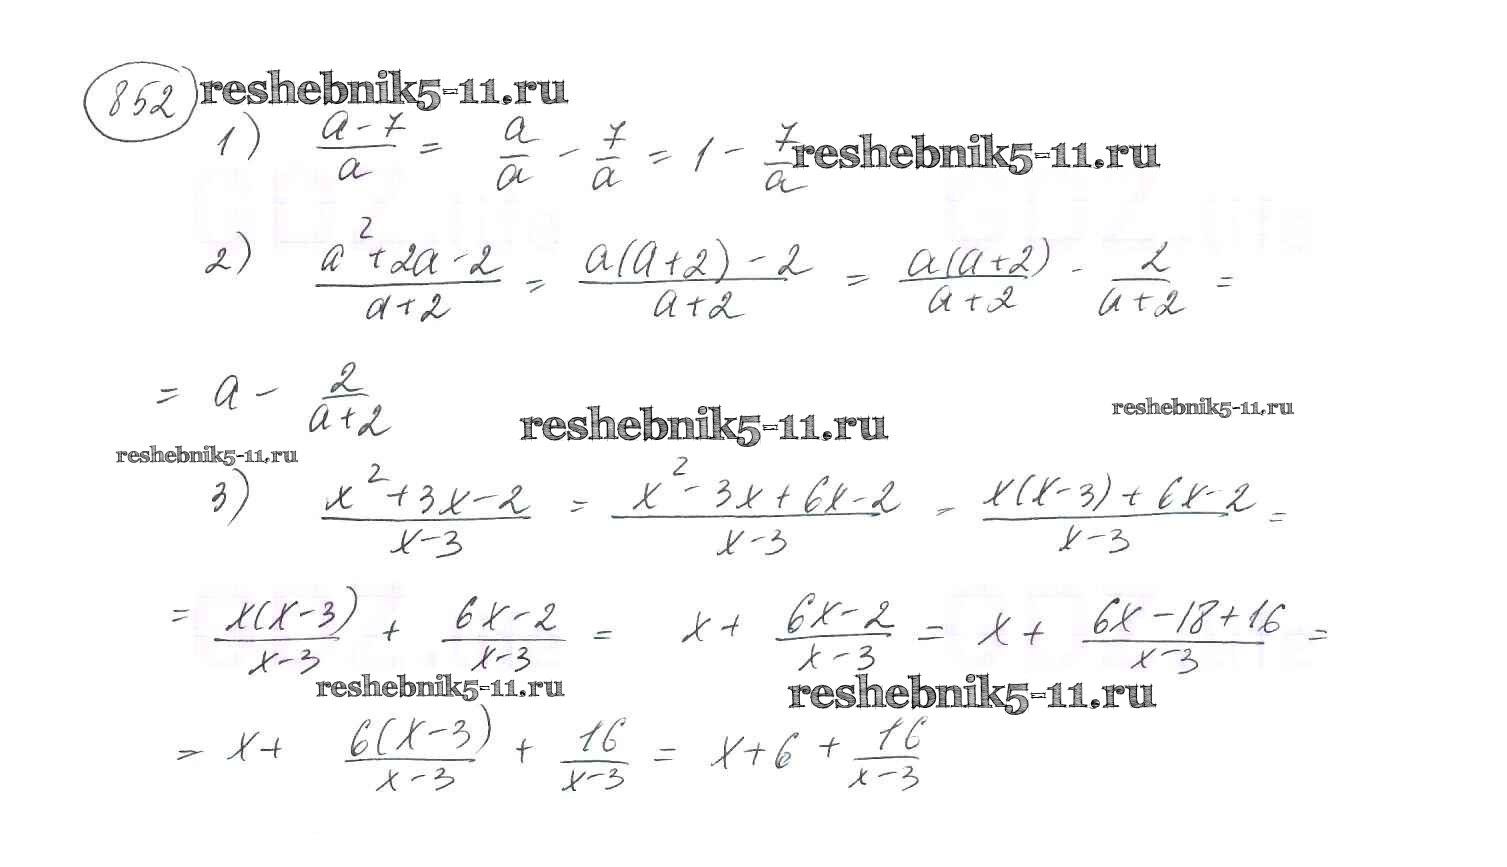 852 reshebnik5-11.ru
1) (a-7)/a = a/a - 7/a = 1 - 7/a reshebnik5-11.ru
GDZ.life GDZ.life
2) (a²+2a-2)/(a+2) = (a(a+2)-2)/(a+2) = (a(a+2))/(a+2) - 2/(a+2) =
= a - 2/(a+2)
reshebnik5-11.ru reshebnik5-11.ru
reshebnik5-11.ru
3) (x²+3x-2)/(x-3) = (x²-3x+6x-2)/(x-3) = (x(x-3)+6x-2)/(x-3) =
= (x(x-3))/(x-3) + (6x-2)/(x-3) = x + (6x-2)/(x-3) = x + (6x-18+16)/(x-3) =
GDZ.life GDZ.life
reshebnik5-11.ru reshebnik5-11.ru
= x + (6(x-3))/(x-3) + 16/(x-3) = x+6 + 16/(x-3)